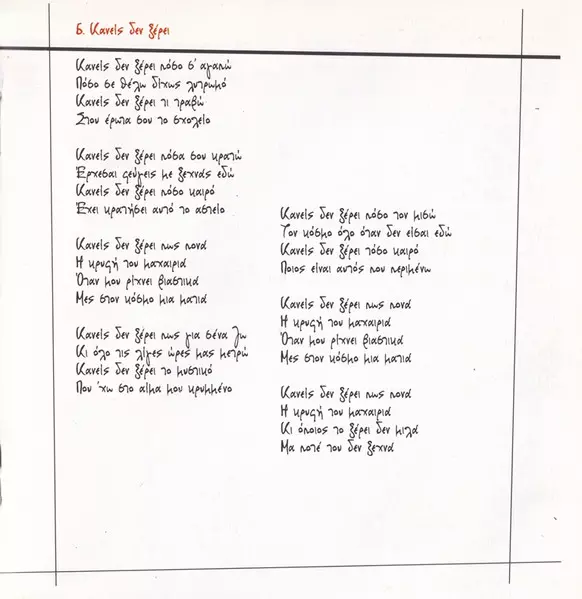 6. Κανείς δεν ξέρει
Κανείς δεν ξέρει πόσο σ' αγαπώ
Πόσο σε θέλω δίχως λυτρωμό
Κανείς δεν ξέρει τι τραβώ
Στου έρωτα σου το σχολείο
Κανείς δεν ξέρει πόσα σου κρατώ
Έρχεσαι φεύγεις με ξεχνάς εδώ
Κανείς δεν ξέρει πόσο καιρό
Έχει κρατήσει αυτό το αστείο
Κανείς δεν ξέρει πως πονά
Η κρυφή του μαχαιριά
Όταν μου ρίχνει βιαστικά
Μες στον κόσμο μια ματιά
Κανείς δεν ξέρει πως για σένα ζω
Κι όλο τις λίγες ώρες μας μετρώ
Κανείς δεν ξέρει το μυστικό
Που 'χω στο αίμα μου κρυμμένο
Κανείς δεν ξέρει πόσο τον μισώ
Τον κόσμο όλο όταν δεν είσαι εδώ
Κανείς δεν ξέρει τόσο καιρό
Ποιος είναι αυτός που περιμένω
Κανείς δεν ξέρει πως πονά
Η κρυφή του μαχαιριά
Όταν μου ρίχνει βιαστικά
Μες στον κόσμο μια ματιά
Κανείς δεν ξέρει πως πονά
Η κρυφή του μαχαιριά
Κι όποιος το ξέρει δεν μιλά
Μα ποτέ του δεν ξεχνά